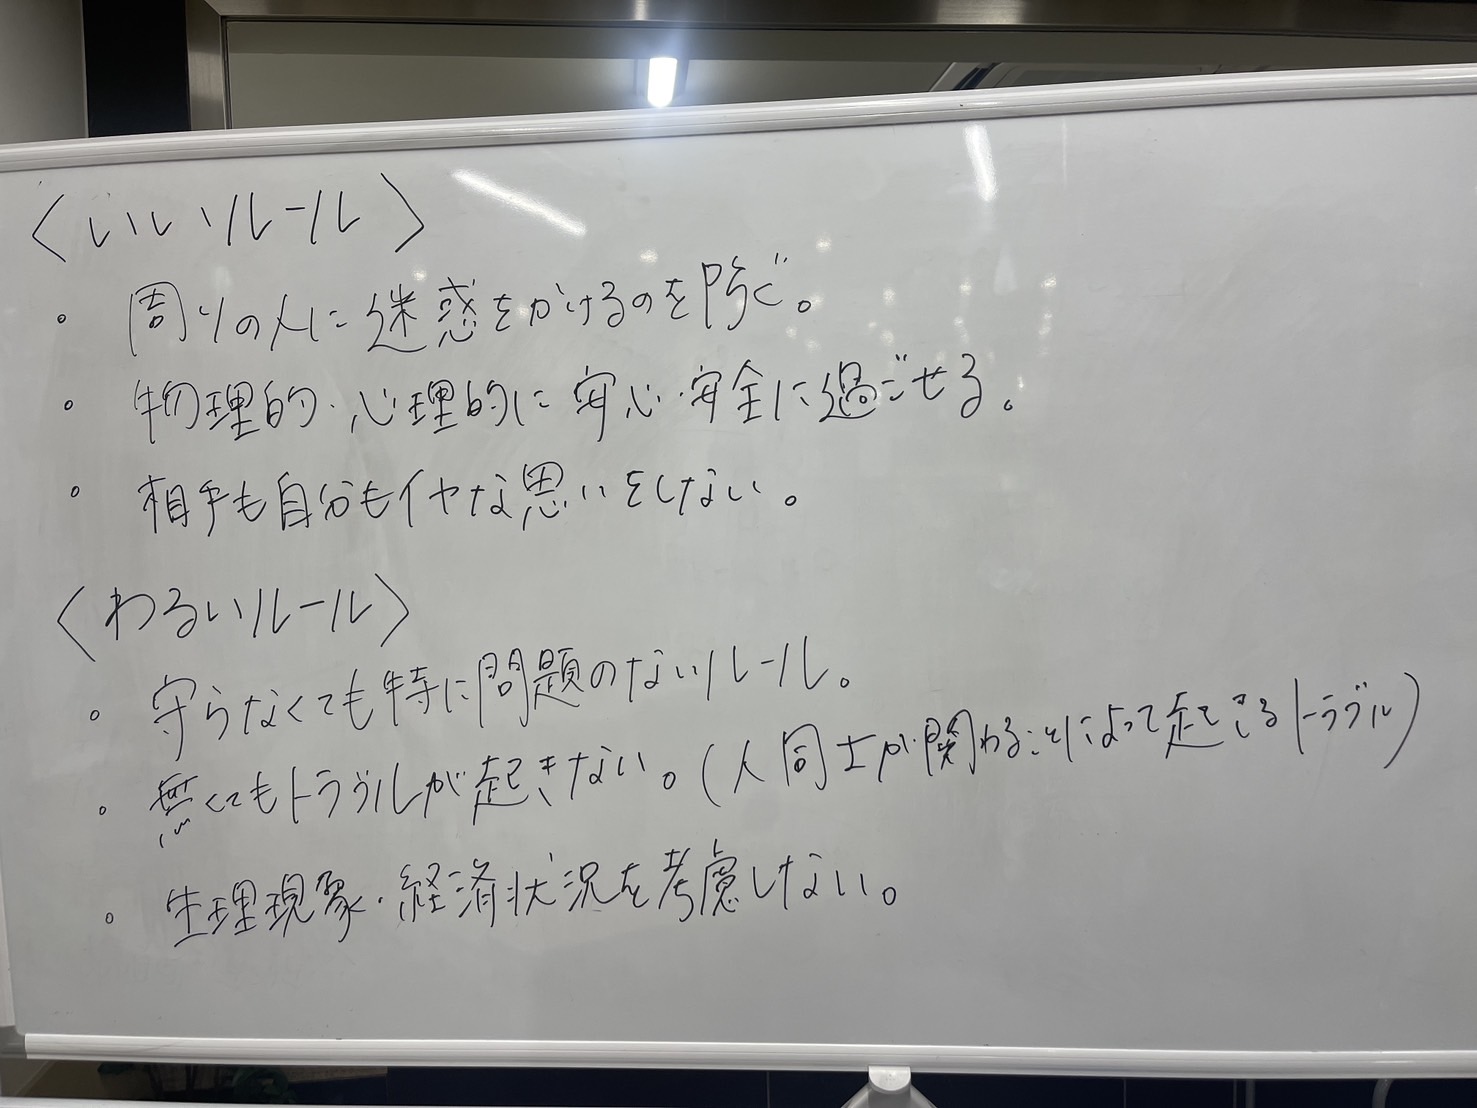 〈いいルール〉
。周りの人に迷惑をかけるのを防ぐ。
。物理的・心理的に安心・安全に過ごせる。
。相手も自分もイヤな思いをしない。
〈わるいルール〉
。守らなくても特に問題のないルール。
。無くてもトラブルが起きない。(人同士が関わることによって起きるトラブル)
。生理現象・経済状況を考慮しない。